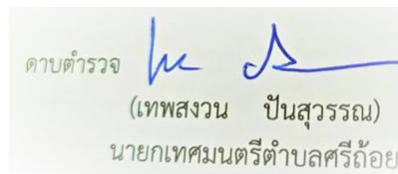 ดาบตำรวจ
(เทพสงวน ปันสุวรรณ)
นายกเทศมนตรีตำบลศรีถ้อย